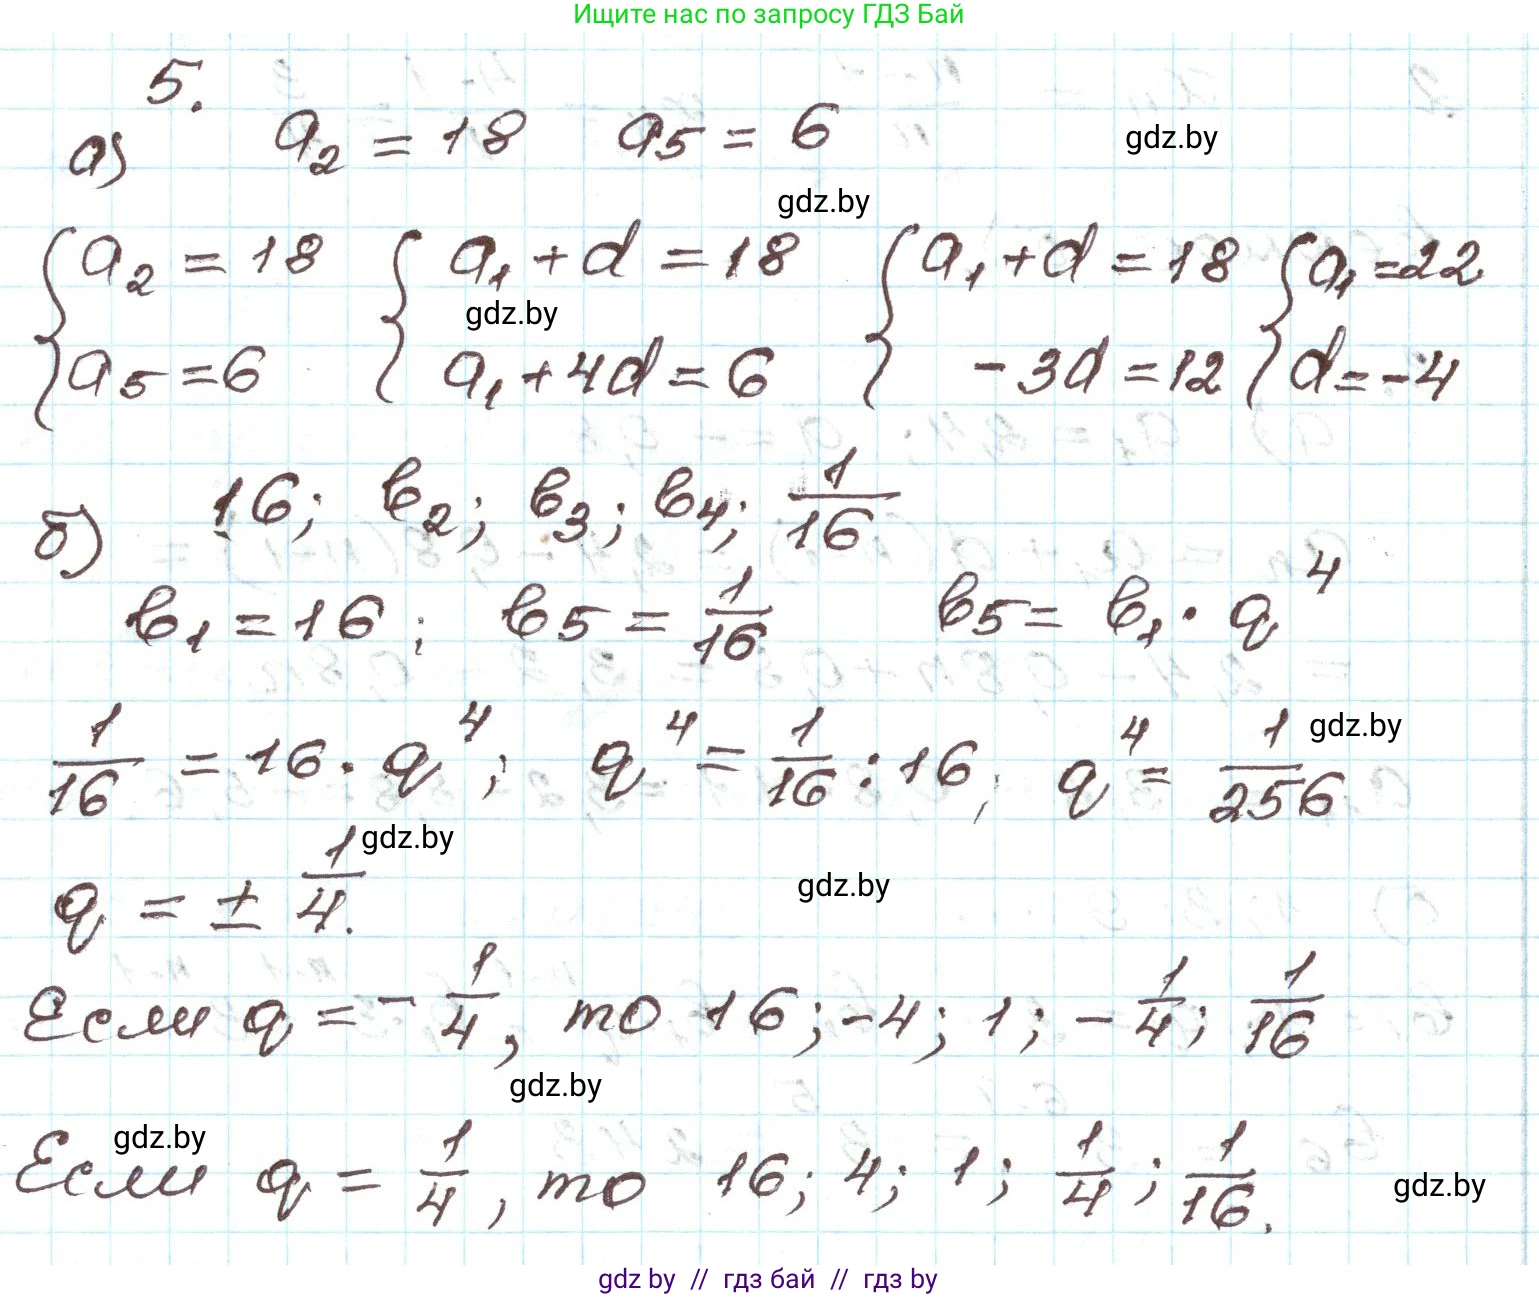 Ищите нас по запросу ГДЗ Бай
5.
а) a₂ = 18 a₅ = 6 gdz.by
gdz.by
{a₂ = 18 {a₁ + d = 18 {a₁ + d = 18 {a₁ = 22
gdz.by
a₅ = 6 a₁ + 4d = 6 - 3d = 12 d = -4
б) 16; b₂; b₃; b₄; 1/16
b₁ = 16; b₅ = 1/16 b₅ = b₁ · q⁴
1/16 = 16 · q⁴; q⁴ = 1/16 : 16, q⁴ = 1/256 gdz.by
q = ± 1/4. gdz.by gdz.by
Если q = - 1/4, то 16; -4; 1; - 1/4; 1/16
gdz.by
gdz.by
Если q = 1/4, то 16; 4; 1; 1/4; 1/16. gdz.by
gdz by // гдз бай // гдз by